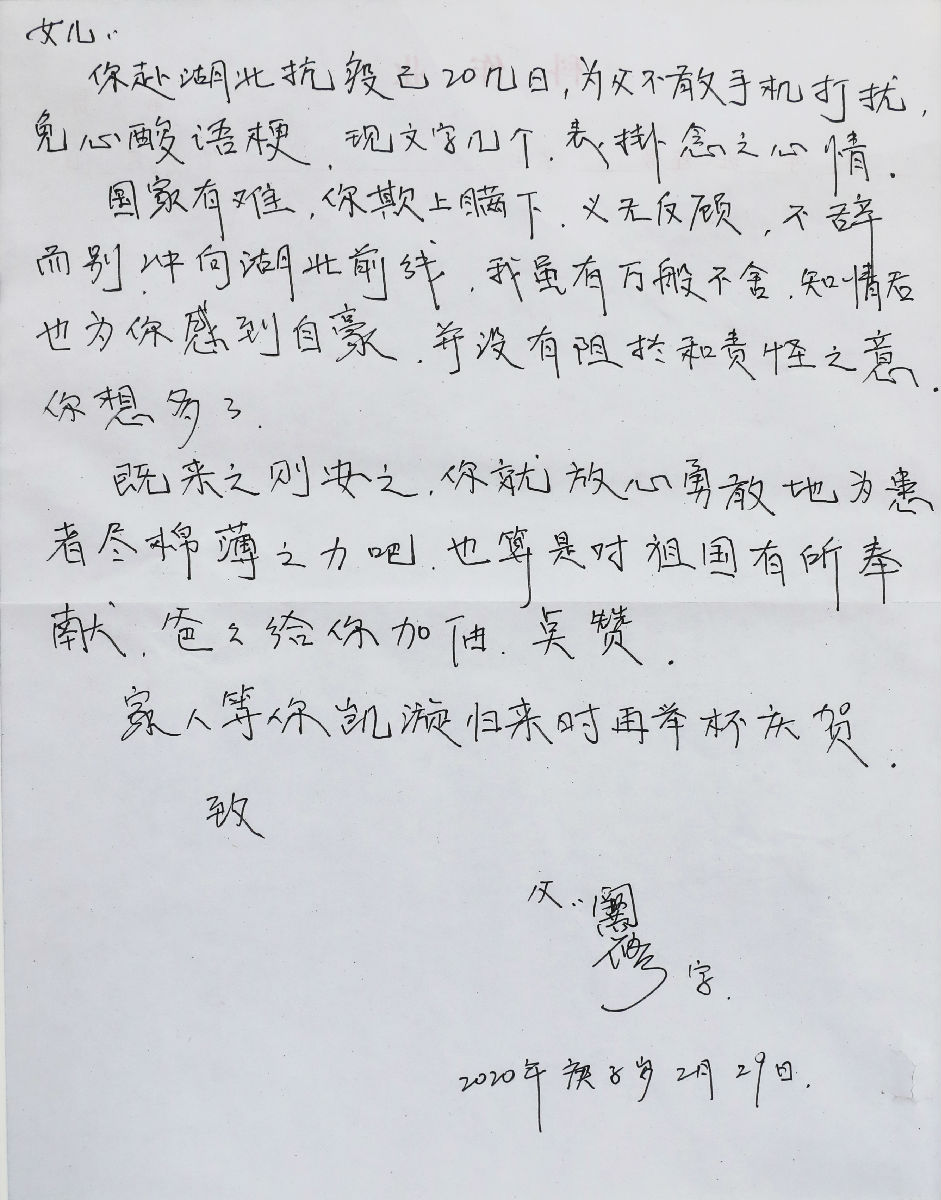 女儿:
你赴湖北抗疫已20几日,为父不敢手机打扰,
免心酸语梗,现文字几个,表掛念之心情.
国家有难,你欺上瞒下,义无反顾,不辞
而别,冲向湖北前线,我虽有万般不舍,知情后
也为你感到自豪,并没有阻拦和责怪之意.
你想多了.
既来之则安之,你就放心勇敢地为患
者尽棉薄之力吧,也算是对祖国有所奉
献,爸爸给你加油,点赞.
家人等你凯漩归来时再举杯庆贺.
致
父:
字.
2020年庚子岁2月29日.